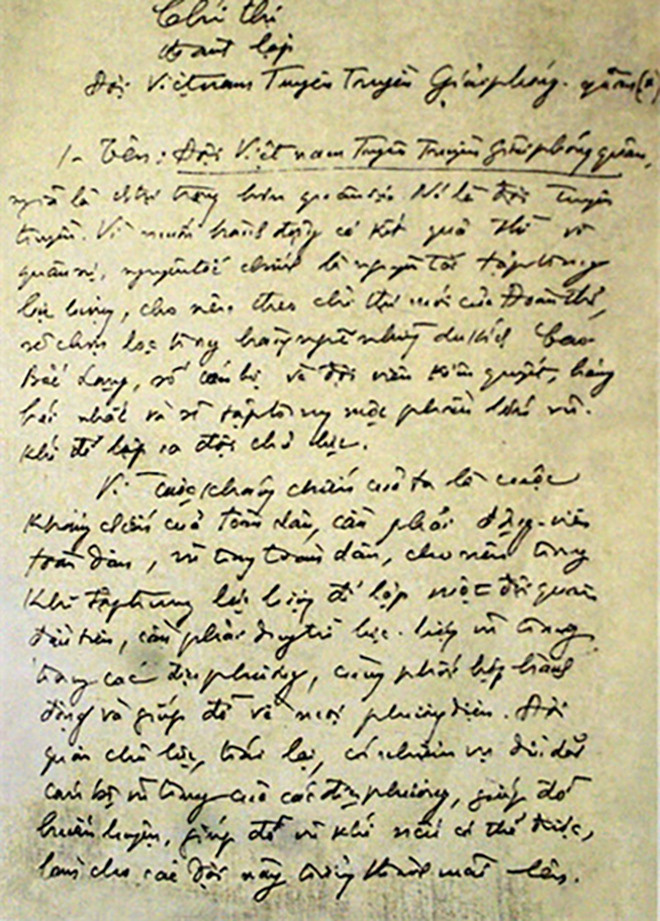 Chỉ thị
thành lập
Đội Việtnam Tuyên Truyền Giảiphóng quân
1- Tên: Đội Việt nam Tuyên Truyền Giảiphóng quân,
nghĩa là chính trị trọng hơn quân sự. Nó là đội Tuyên
truyền. Vì muốn hành động có kết quả thì về
quân sự, nguyên tắc chính là nguyên tắc tập trung
lực lượng, cho nên, theo chỉ thị mới của Đoàn thể,
sẽ chọn lọc trong hàng ngũ những du kích Cao
Bắc Lạng, số cán bộ và đội viên kiên quyết, hăng
hái nhất và sẽ tập trung một phần lớn vũ
khí để lập ra đội chủ lực.
Vì cuộc kháng chiến của ta là cuộc
kháng chiến của toàn dân, cần phải động viên
toàn dân, vũ trang toàn dân, cho nên trong
khi tập trung lực lượng để lập một đội quân
đầu tiên, cần phải duy trì lực lượng vũ trang
trong các địa phương, cùng phối hợp hành
động và giúp đỡ về mọi phương diện. Đội
quân chủ lực, trái lại, có nhiệm vụ dìu dắt
cán bộ vũ trang của các địa phương, giúp đỡ
huấn luyện, giúp đỡ vũ khí nếu có thể được,
làm cho các đội này trưởng thành mãi lên.